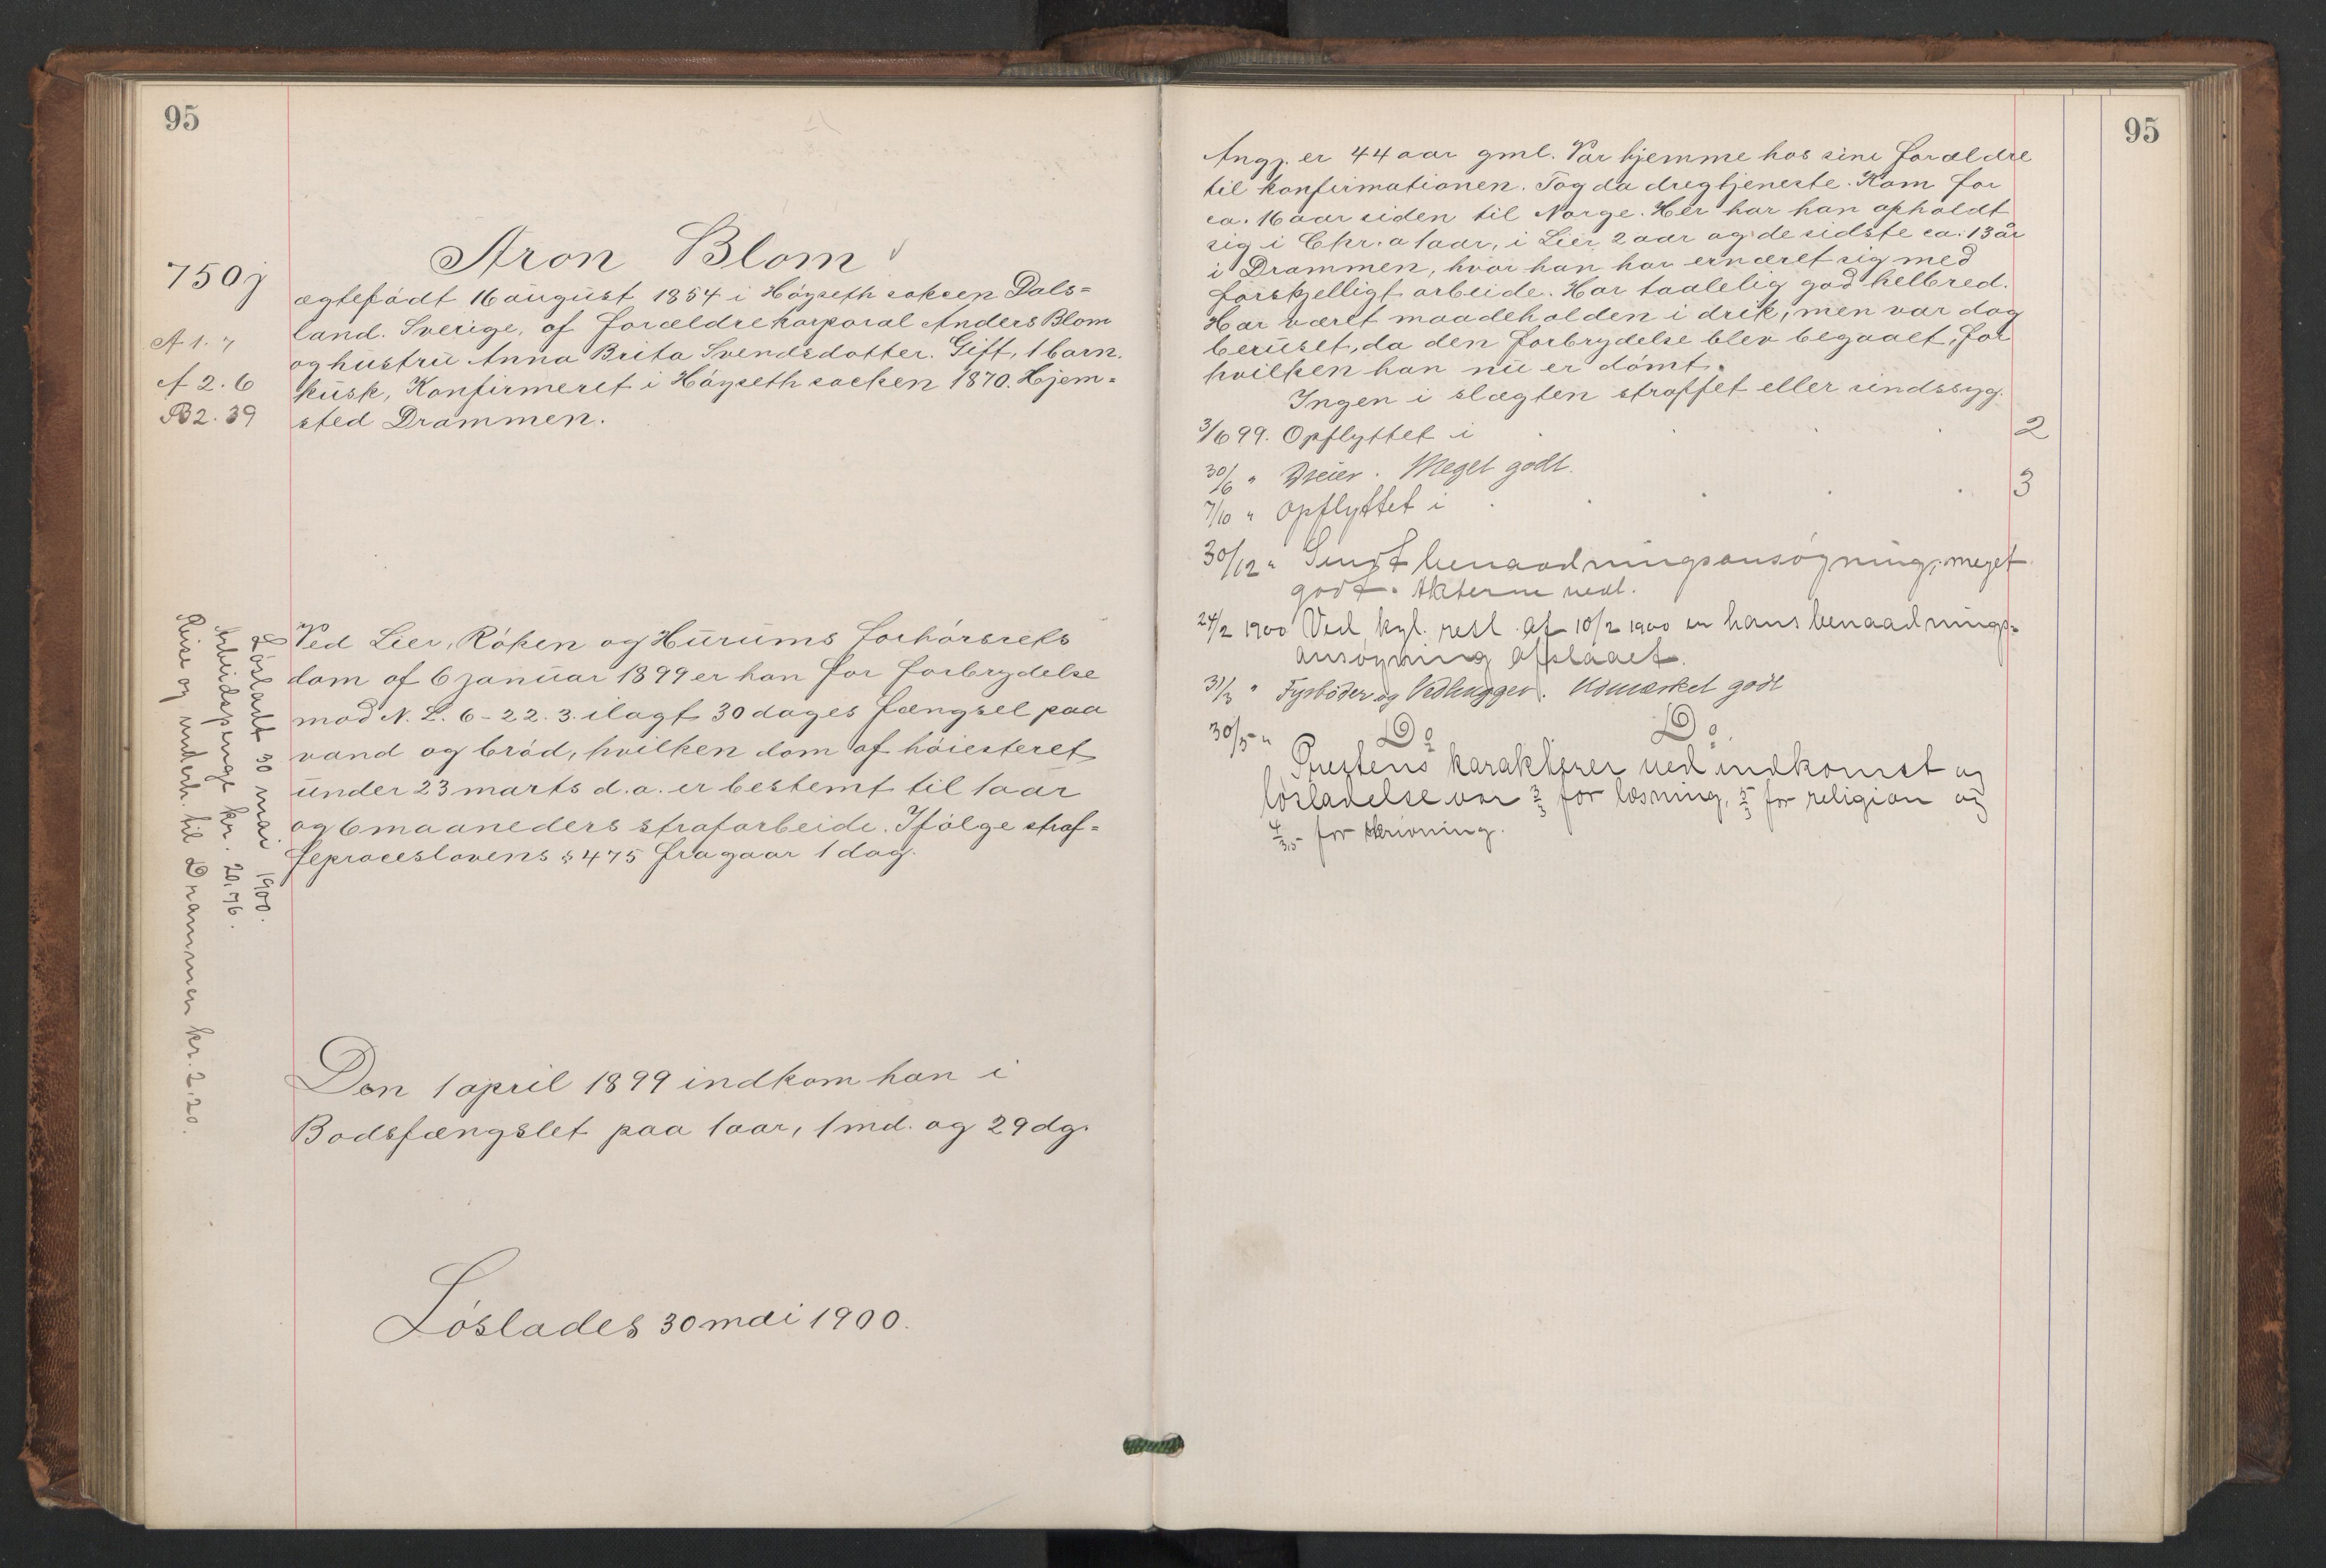 95
Aron Blom
750j
ægtefödt 16 august 1854 i Höyseth soksen Dals=
land. Sverige, af forældre korporal Anders Blom
A 1. 7
og hustru Anna Brita Svendsdotter. Gift, 1 barn.
A 2. 6
kusk, Konfirmeret i Höyseth socken 1870. Hjem=
B2. 39
sted Drammen.
Ved Lier, Röken og Hurums forhörsrets
dom af 6 januar 1899 er han for forbrydelse
mod N. L. 6-22.3. ilagt 30 dages fængsel paa
vand og bröd, hvilken dom af höiesteret
under 23 marts d.a. er bestemt til 1 aar
og 6 maaneders strafarbeide. Ifölge straf=
feproceslovens § 475 fragaar 1 dag.
Lösladt 30 mai 1900.
Arbeidspenge kr. 20,76.
Reise og underh. til Drammen kr. 2.20.
Den 1 april 1899 indkom han i
Bodsfængslet paa 1 aar, 1 md. og 29 dg.
Löslades 30 mai 1900.
95
Angj. er 44 aar gml. Var hjemme hos sine forældre
til konfirmationen. Tog da dregtjeneste. Kom for
ca. 16 aar siden til Norge. Her har han opholdt
sig i Chr.a 1 aar, i Lier 2 aar og de sidste ca. 13 år
i Drammen, hvor han har ernæret sig med
forskjelligt arbeide. Har taalelig god helbred.
Har været maadeholden i drik, men var dog
beruset, da den forbrydelse blev begaaet, for
hvilken han nu er dömt.
Ingen i slægten straffet eller sindssyg.
3/6 99. Opflyttet i . . . . 2
30/6 " Dreier. Meget godt.
7/10 " Opflyttet i . . . . . 3
30/12 " Sendt benaadningsansögning, meget
godt. Akterne vedl.
24/2 1900 Ved kgl. resl. af 10/2 1900 er hans benaadnings=
ansögning afslaaet.
31/3 " Fyrböder og Vedhugger. Udmærket godt
30/5 " Do Do.
Prestens karakterer ved indkomst og
lösladelse var 3/3 for læsning, 5/3 for religion og
4/3,5 for skrivning.